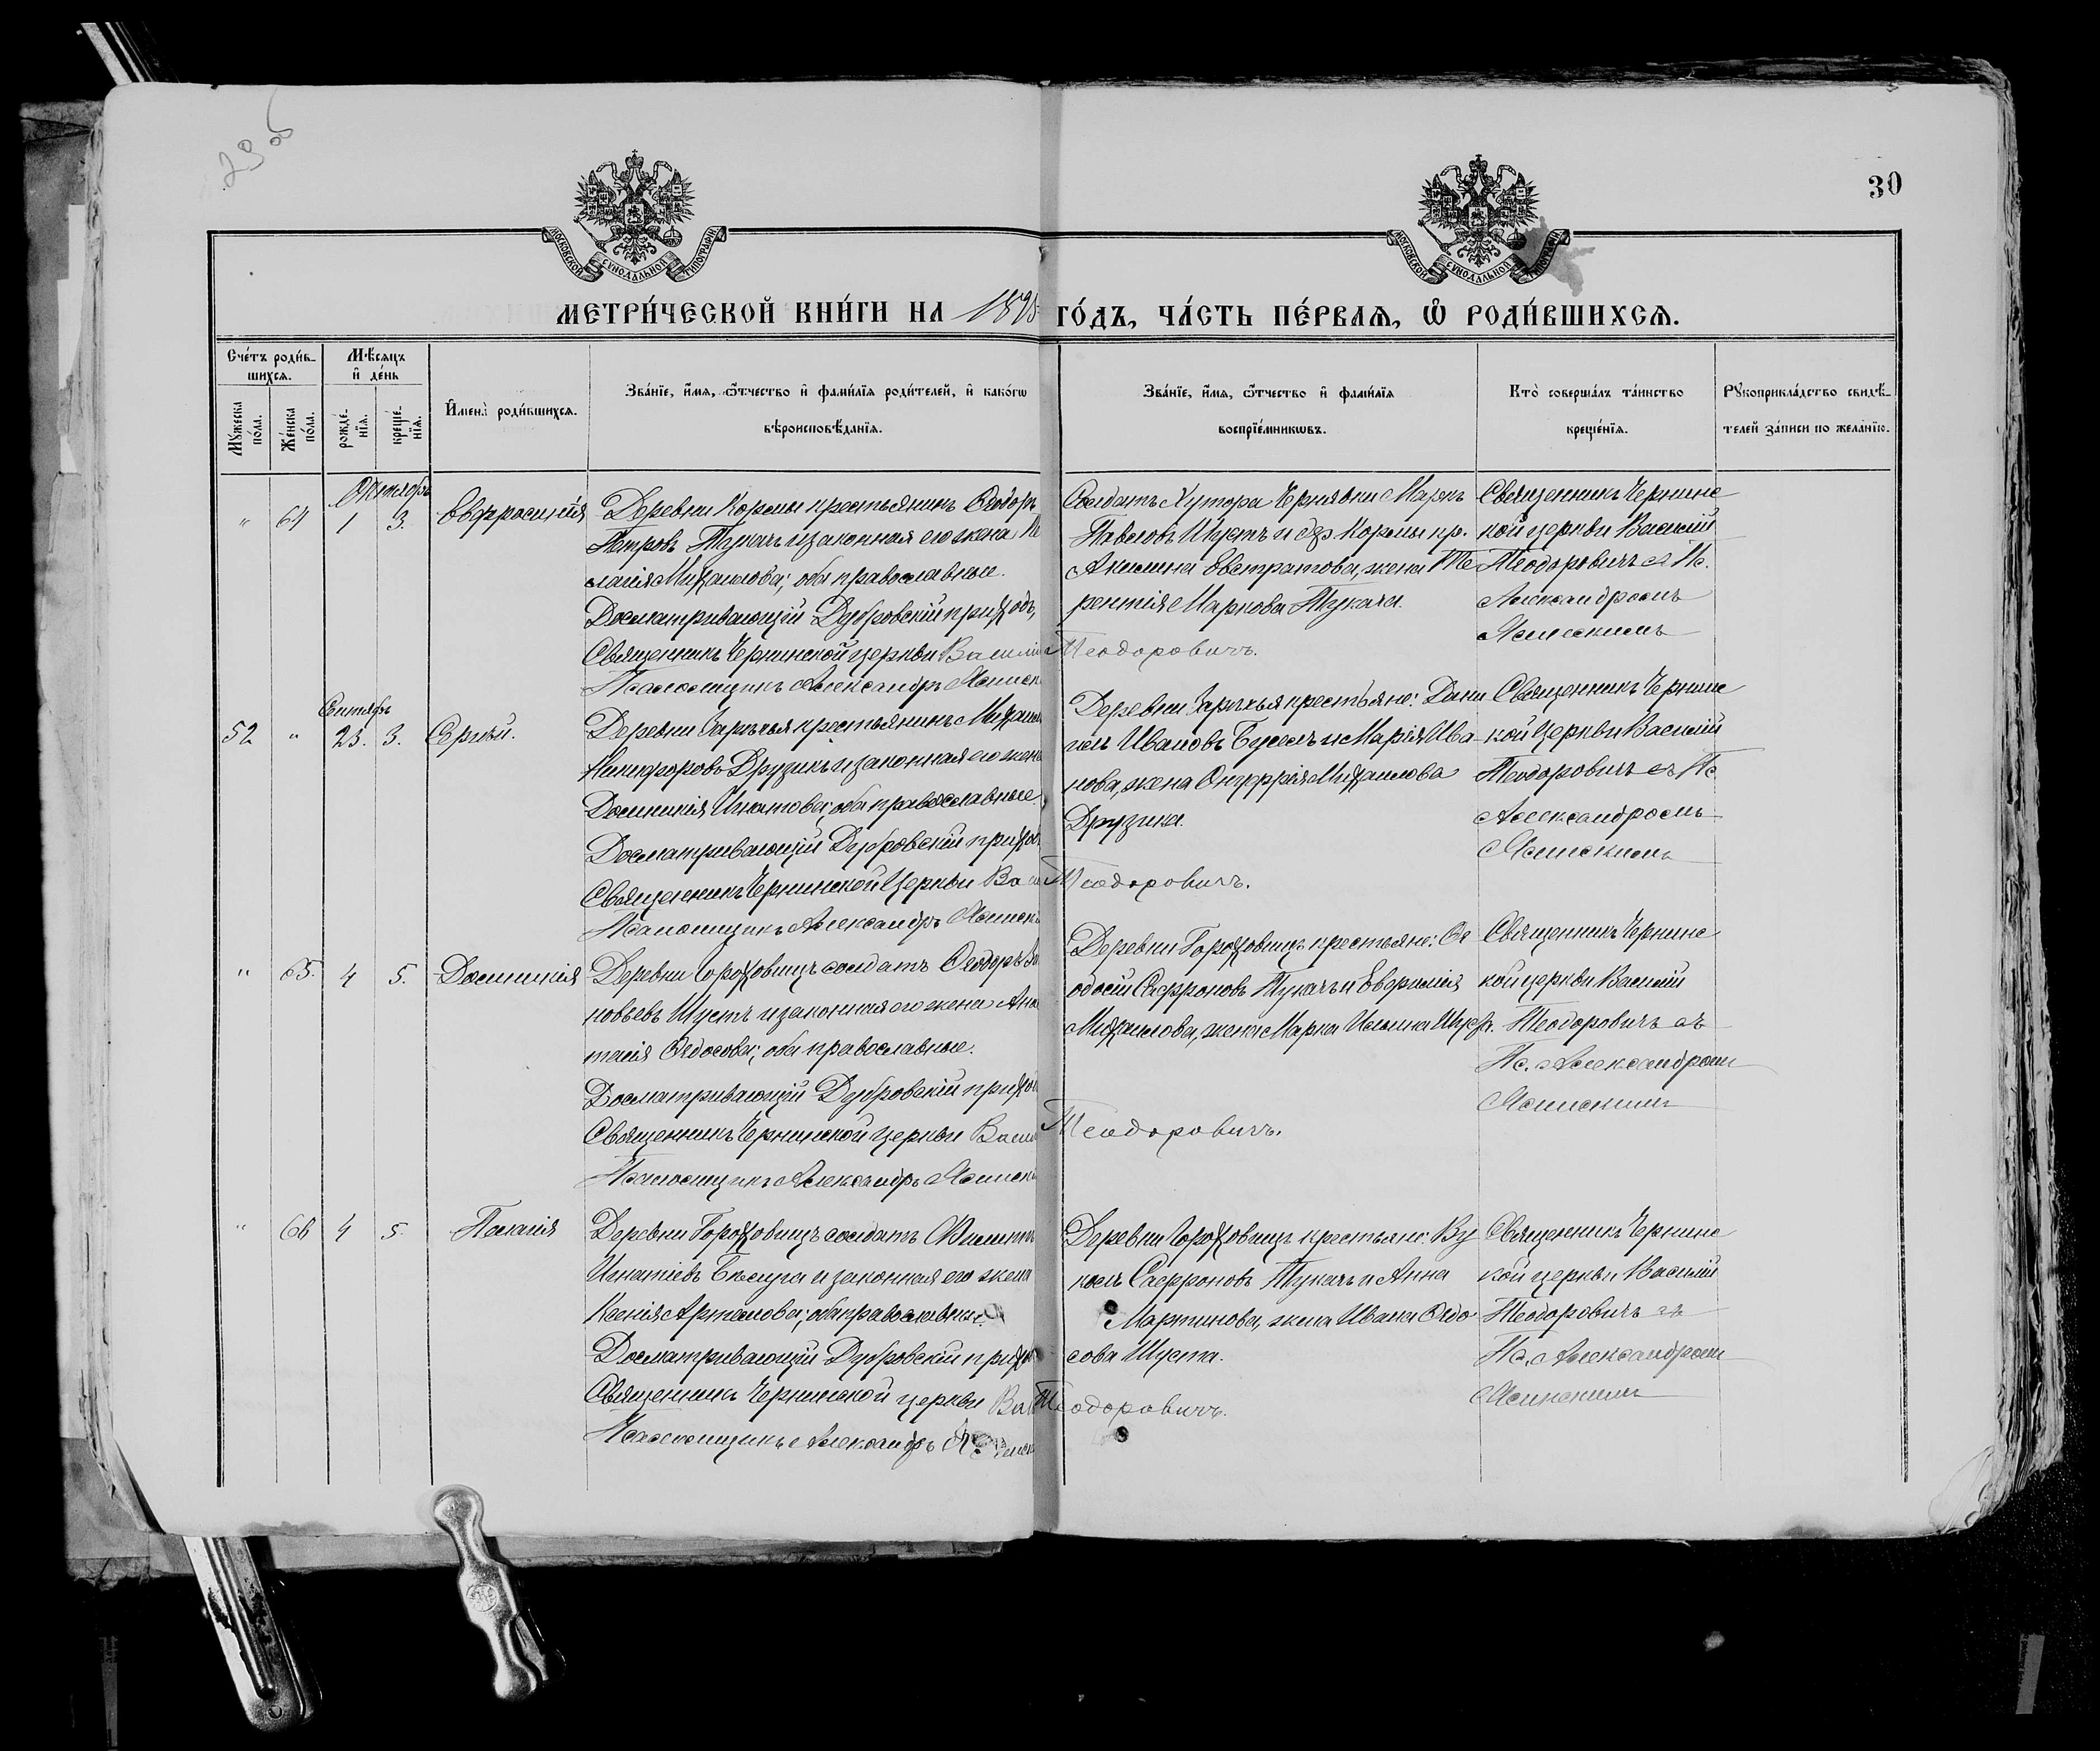 29 об
30
МОСКОВСКОЙ СУНОДАЛЬНОЙ ТИПОГРАФІИ
МОСКОВСКОЙ СУНОДАЛЬНОЙ ТИПОГРАФІИ
МЕТРИ́ЧЕСКОЙ КНИ́ГИ НА
ГО́ДЪ, ЧА́СТЬ ПЕ́РВАѦ, Ѡ҆ РОДИ́ВШИХСѦ.
Сче́тъ роди́в-
шихсѧ.
Мѣ́сѧцъ
и҆ де́нь
Мꙋ́жеска по́ла.
Же́нска по́ла.
рожде́-нїѧ.
креще́-нїѧ.
И҆мена̀ роди́вшихсѧ.
Зва́нїе, и҆́мѧ, ѻ҆́тчество и҆ фамі́лїѧ роди́телей, и҆ како́гѡ
вѣроисповѣ́данїѧ.
Зва́нїе, и҆́мѧ, ѻ҆́тчество и҆ фамі́лїѧ
воспрїе́мникѡвъ.
Кто̀ соверша́лъ та́инство
креще́нїѧ.
Рꙋкоприкла́дство свидѣ́-
телей за́писи по жела́нїю.
Октябрь
" 64 1 3. Евфросинія
Деревни Кормы крестьянинъ Ѳеодоръ
Петровъ Тукачъ и законная его жена
Михаилова; оба православные.
Досматривающій Дубровскій приходъ,
Священникъ Чернинской церкви Василій Теодоровичъ.
Псаломщикъ Александръ
Солдатъ Хутора Чернявки Маркъ
Павловъ Шустъ и дер. Кормы кр.
Акилина Евстратова, жена Те
рентія Маркова Тукача.
Священникъ Чернинс
кой церкви Василій
Теодоровичъ съ Пс.
Александромъ
Сентябрь
52 " 23. 3. Сергій.
Деревни Заречья крестьянинъ
Никифоровъ Друзикъ и законная его жена
Домникія Игнатова; оба православные.
Досматривающій Дубровскій приход
Священникъ Чернинской Церкви Ва Теодоровичъ.
Псаломщикъ Александръ
Деревни Заречья крестьяне: Дани
илъ Ивановъ Буселъ и Марія Ива-
нова, жена Онуфрія Михаилова
Друзика.
Священникъ Чернинс
кой Церкви Василій
Теодоровичъ съ Пс.
Александромъ
" 65. 4 5. Домникія
Деревни Гороховищъ солдатъ Ѳеодоръ
новьевъ Шустъ и законная его жена Анас
тасія Ѳедосова; оба православные.
Досматривающій Дубровскій приход
Священникъ Чернинской церкви Васил Теодоровичъ.
Псаломщикъ Александръ
Деревни Гороховищъ крестьяне: Ѳе
одосій Сафроновъ Тукачъ и Евфимія
Михаилова, жена Марка Ильина Шуста.
Священникъ Чернинс
кой церкви Василій
Теодоровичъ съ
Пс. Александромъ
" 66 4 5. Пелагія
Деревни Гороховищъ солдатъ Филиппъ
Игнатіевъ и законная его жена
Ксенія Артемова; оба православные.
Досматривающій Дубровскій приход
Священникъ Чернинской церкви Ва Теодоровичъ.
Псаломщикъ Александръ
Деревни Гороховищъ крестьяне: Ву
колъ Сафроновъ Тукачъ и Анна
Мартинова, жена Ивана Ѳедо
сова Шуста.
Священникъ Чернинс
кой церкви Василій
Теодоровичъ съ
Пс. Александромъ